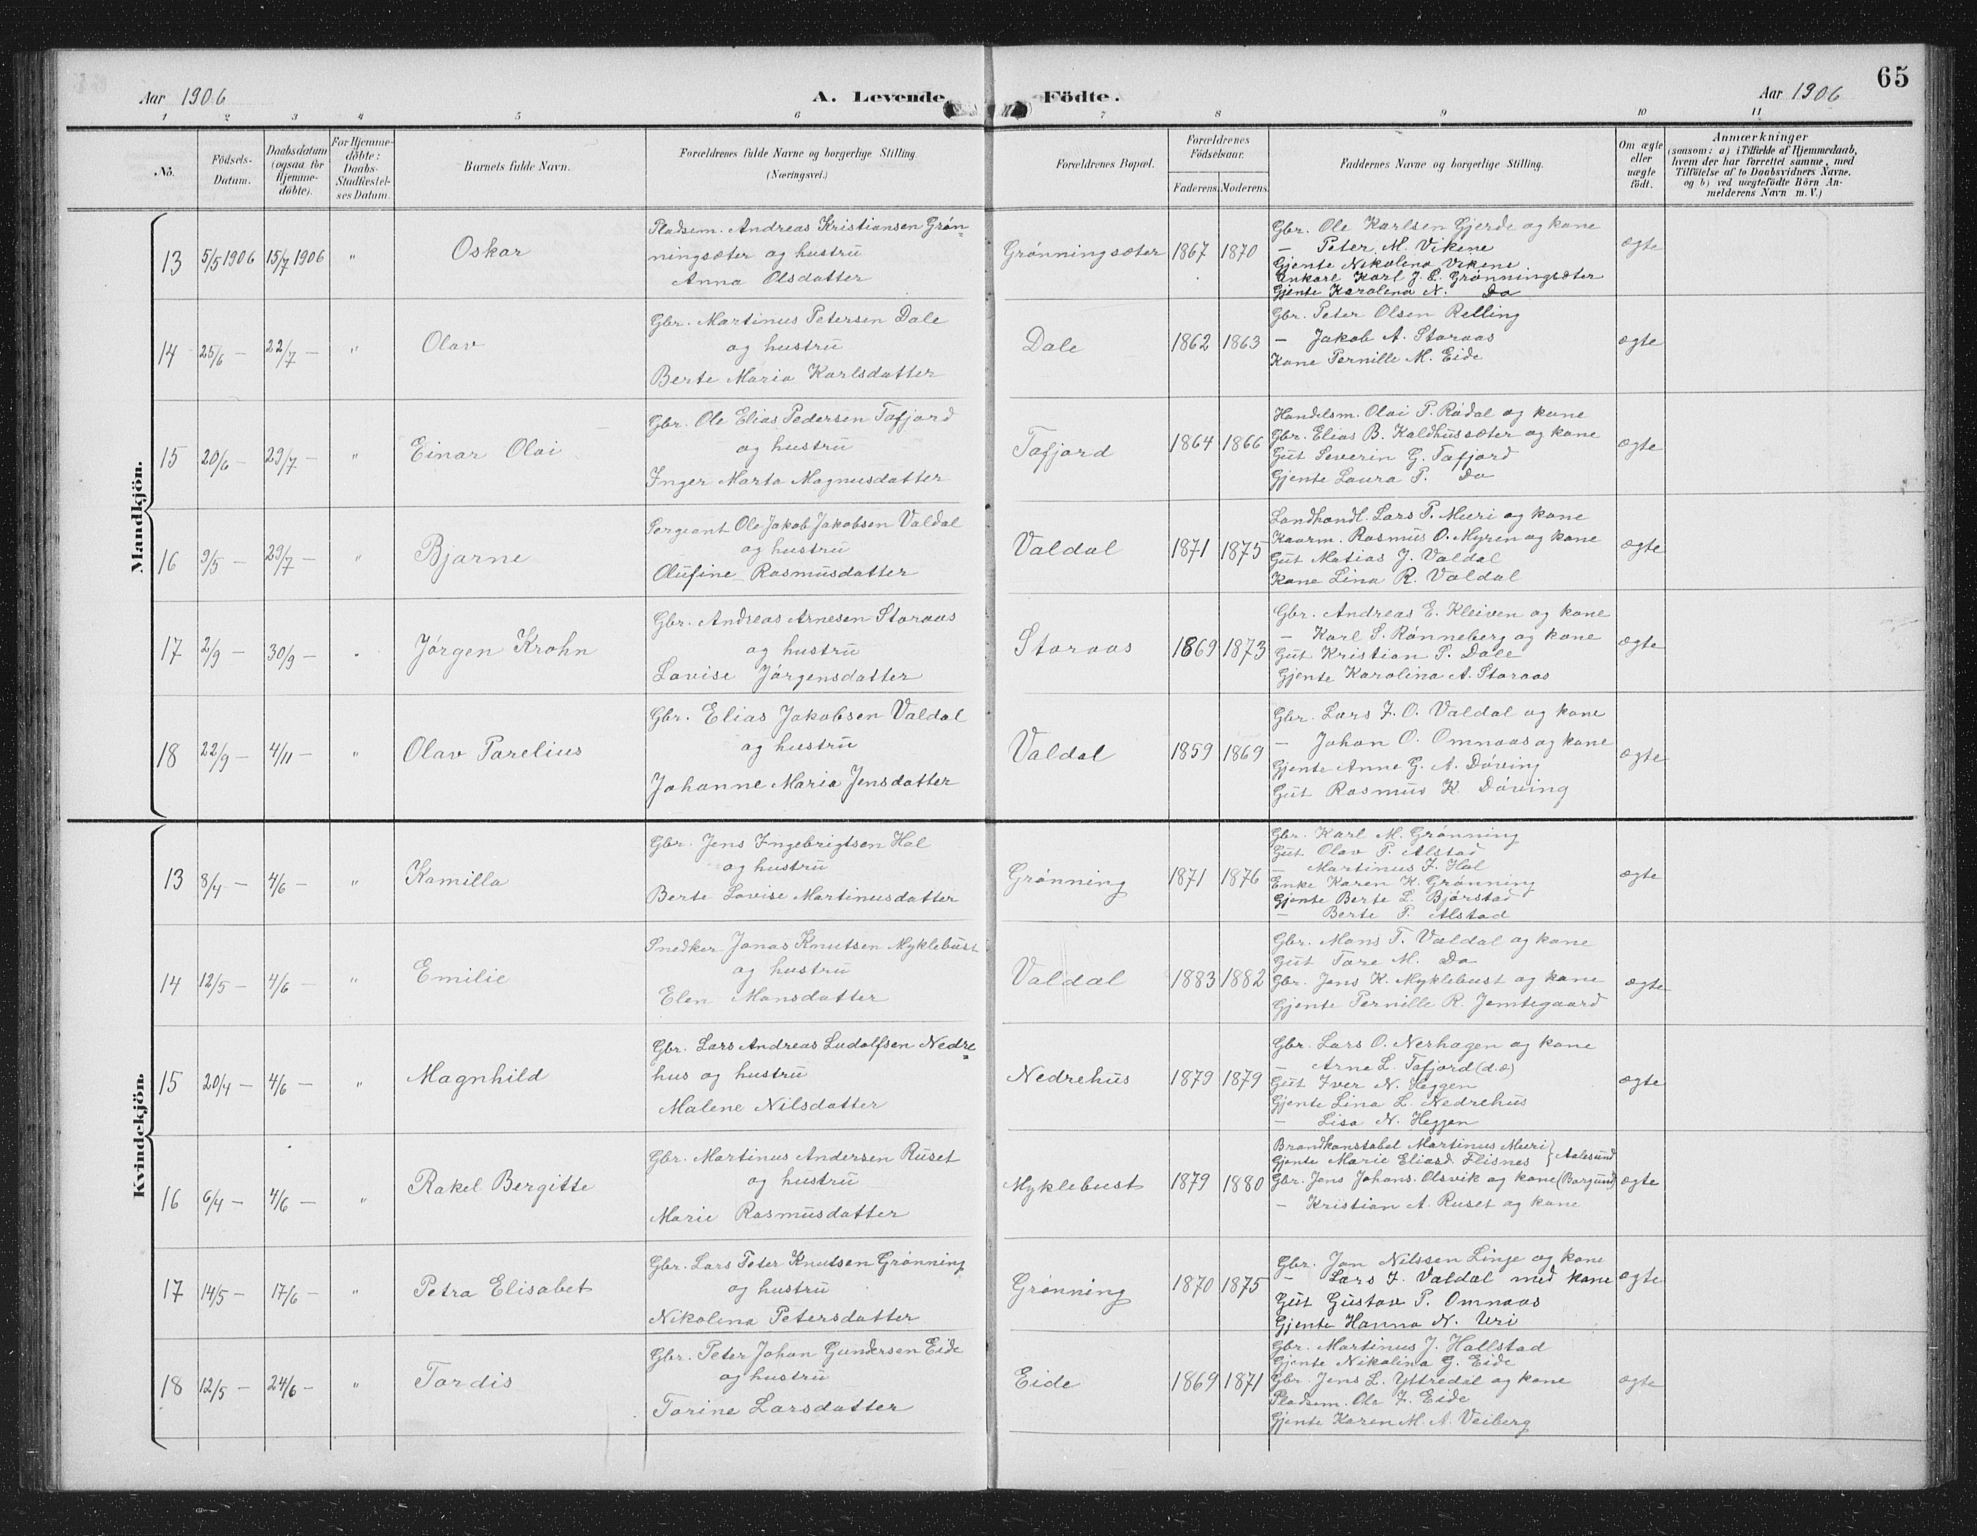 65
Aar 1906 A. Levende Födte. Aar 1906
1 2 3 4 5 6 7 8 9 10 11
No.
Födsels-Datum.
Daabsdatum (ogsaa for Hjemmedöbte).
For Hjemmedöbte: Daabs-Stadfæstelses Datum.
Barnets fulde Navn.
Forældrenes fulde Navne og borgerlige Stilling.
(Næringsvei.)
Forældrenes Bopæl.
Forældrenes Födselsaar.
Faderens. Moderens.
Faddernes Navne og borgerlige Stilling.
Om ægte eller uægte födt.
Anmærkninger
(saasom: a) i Tilfælde af Hjemmedaab, hvem der har forrettet samme, med Tilföielse af to Daabsvidners Navne, og b) ved uægtefödte Börn Anmelderens Navn m. V.)
Mandkjön.
13 5/5 1906 15/7 1906 " Oskar
Pladsem. Andreas Kristiansen Grøn-
ningsæter og hustru
Anna Olsdatter
Grønningsæter 1867 1870
Gbr. Ole Karlsen Gjerde og kone
— Peter M. Vikene
Gjente Nikolina Vikene
Unkarl Karl J. E. Grønningsæter
Gjente Karolena N. Do
ægte
14 25/6 — 22/7 — " Olav
Gbr. Martinus Petersen Dale
og hustru
Berte Maria Karlsdatter
Dale 1862 1863
Gbr. Peter Olsen Relling
— Jakob A. Storaas
Kone Pernille M. Eide
ægte
15 20/6 — 29/7 — " Einar Olai
Gbr. Ole Elias Pedersen Tafjord
og hustru
Inger Marta Magnusdatter
Tafjord 1864 1866
Handelsm. Olai P. Rødal og kone
Gbr. Elias B. Kaldhussæter og kone
Gut Severin G. Tafjord
Gjente Laura P. Do
ægte
16 9/5 — 29/7 — " Bjarne
Sergeant Ole Jakob Jakobsen Valdal
og hustru
Olufine Rasmusdatter
Valdal 1871 1875
Landhandl. Lars P. Muri og kone
Kaarm. Rasmus O. Myren og kone
Gut Matias J. Valdal
Kone Lina R. Valdal
ægte
17 2/9 — 30/9 — " Jørgen Krohn
Gbr. Andreas Arnesen Storaas
og hustru
Lovise Jørgensdatter
Storaas 1869 1873
Gbr. Andreas E. Kleiven og kone
— Karl S. Rønneberg og kone
Gut Kristian P. Dale
Gjente Karolina A. Storaas
ægte
18 22/9 — 4/11 — " Olav Parelius
Gbr. Elias Jakobsen Valdal
og hustru
Johanne Maria Jensdatter
Valdal 1859 1869
Gbr. Lars J. O. Valdal og kone
— Johan O. Omnaas og kone
Gjente Anne G. A. Døving
Gut Rasmus K. Døving
ægte
Kvindekjön.
13 8/4 — 4/6 — " Kamilla
Gbr. Jens Ingebrigtsen Hol
og hustru
Berte Lovise Martinusdatter
Grønning 1871 1876
Gbr. Karl M. Grønning
Gut Olav P. Alstad
— Martinus J. Hol
Enke Karen K. Grønning
Gjente Berte L. Bjørstad
— Berte P. Alstad
ægte
14 12/5 — 4/6 — " Emilie
Snedker Jonas Knutsen Myklebust
og hustru
Elen Monsdatter
Valdal 1883 1882
Gbr. Mons T. Valdal og kone
Gut Tore M. Do
Gbr. Jens K. Myklebust og kone
Gjente Pernille R. Jemtegaard
ægte
15 20/4 — 4/6 — " Magnhild
Gbr. Lars Andreas Ludolfsen Nedre-
hus og hustru
Malene Nilsdatter
Nedrehus 1879 1879
Gbr. Lars O. Nerhagen og kone
— Arne L. Tafjord (d.æ)
Gut Iver N. Heggen
Gjente Lina L. Nedrehus
— Lisa N. Heggen
ægte
16 6/4 — 4/6 — " Rakel Bergitte
Gbr. Martinus Andersen Ruset
og hustru
Marie Rasmusdatter
Myklebust 1879 1880
Brandkonstabel Martinus Muri } Aalesund
Gjente Marie Eliasd. Flisnes
Gbr. Jens Johans. Olsvik og kone (Borgund)
— Kristian A. Ruset og kone
ægte
17 14/5 — 17/6 — " Petra Elisabet
Gbr. Lars Peter Knutsen Grønning
og hustru
Nikolina Petersdatter
Grønning 1870 1875
Gbr. Jon Nilssen Linge og kone
— Lars J. Valdal med kone
Gut Gustav P. Omnaas
Gjente Hanna N. Uri
ægte
18 12/5 — 24/6 — " Tordis
Gbr. Peter Johan Gundersen Eide
og hustru
Torine Larsdatter
Eide 1869 1871
Gbr. Martinus J. Hallstad
Gjente Nikolina G. Eide
Gbr. Jens L. Yttredal og kone
Pladsem. Ole J. Eide
Gjente Karen M. A. Veiberg
ægte